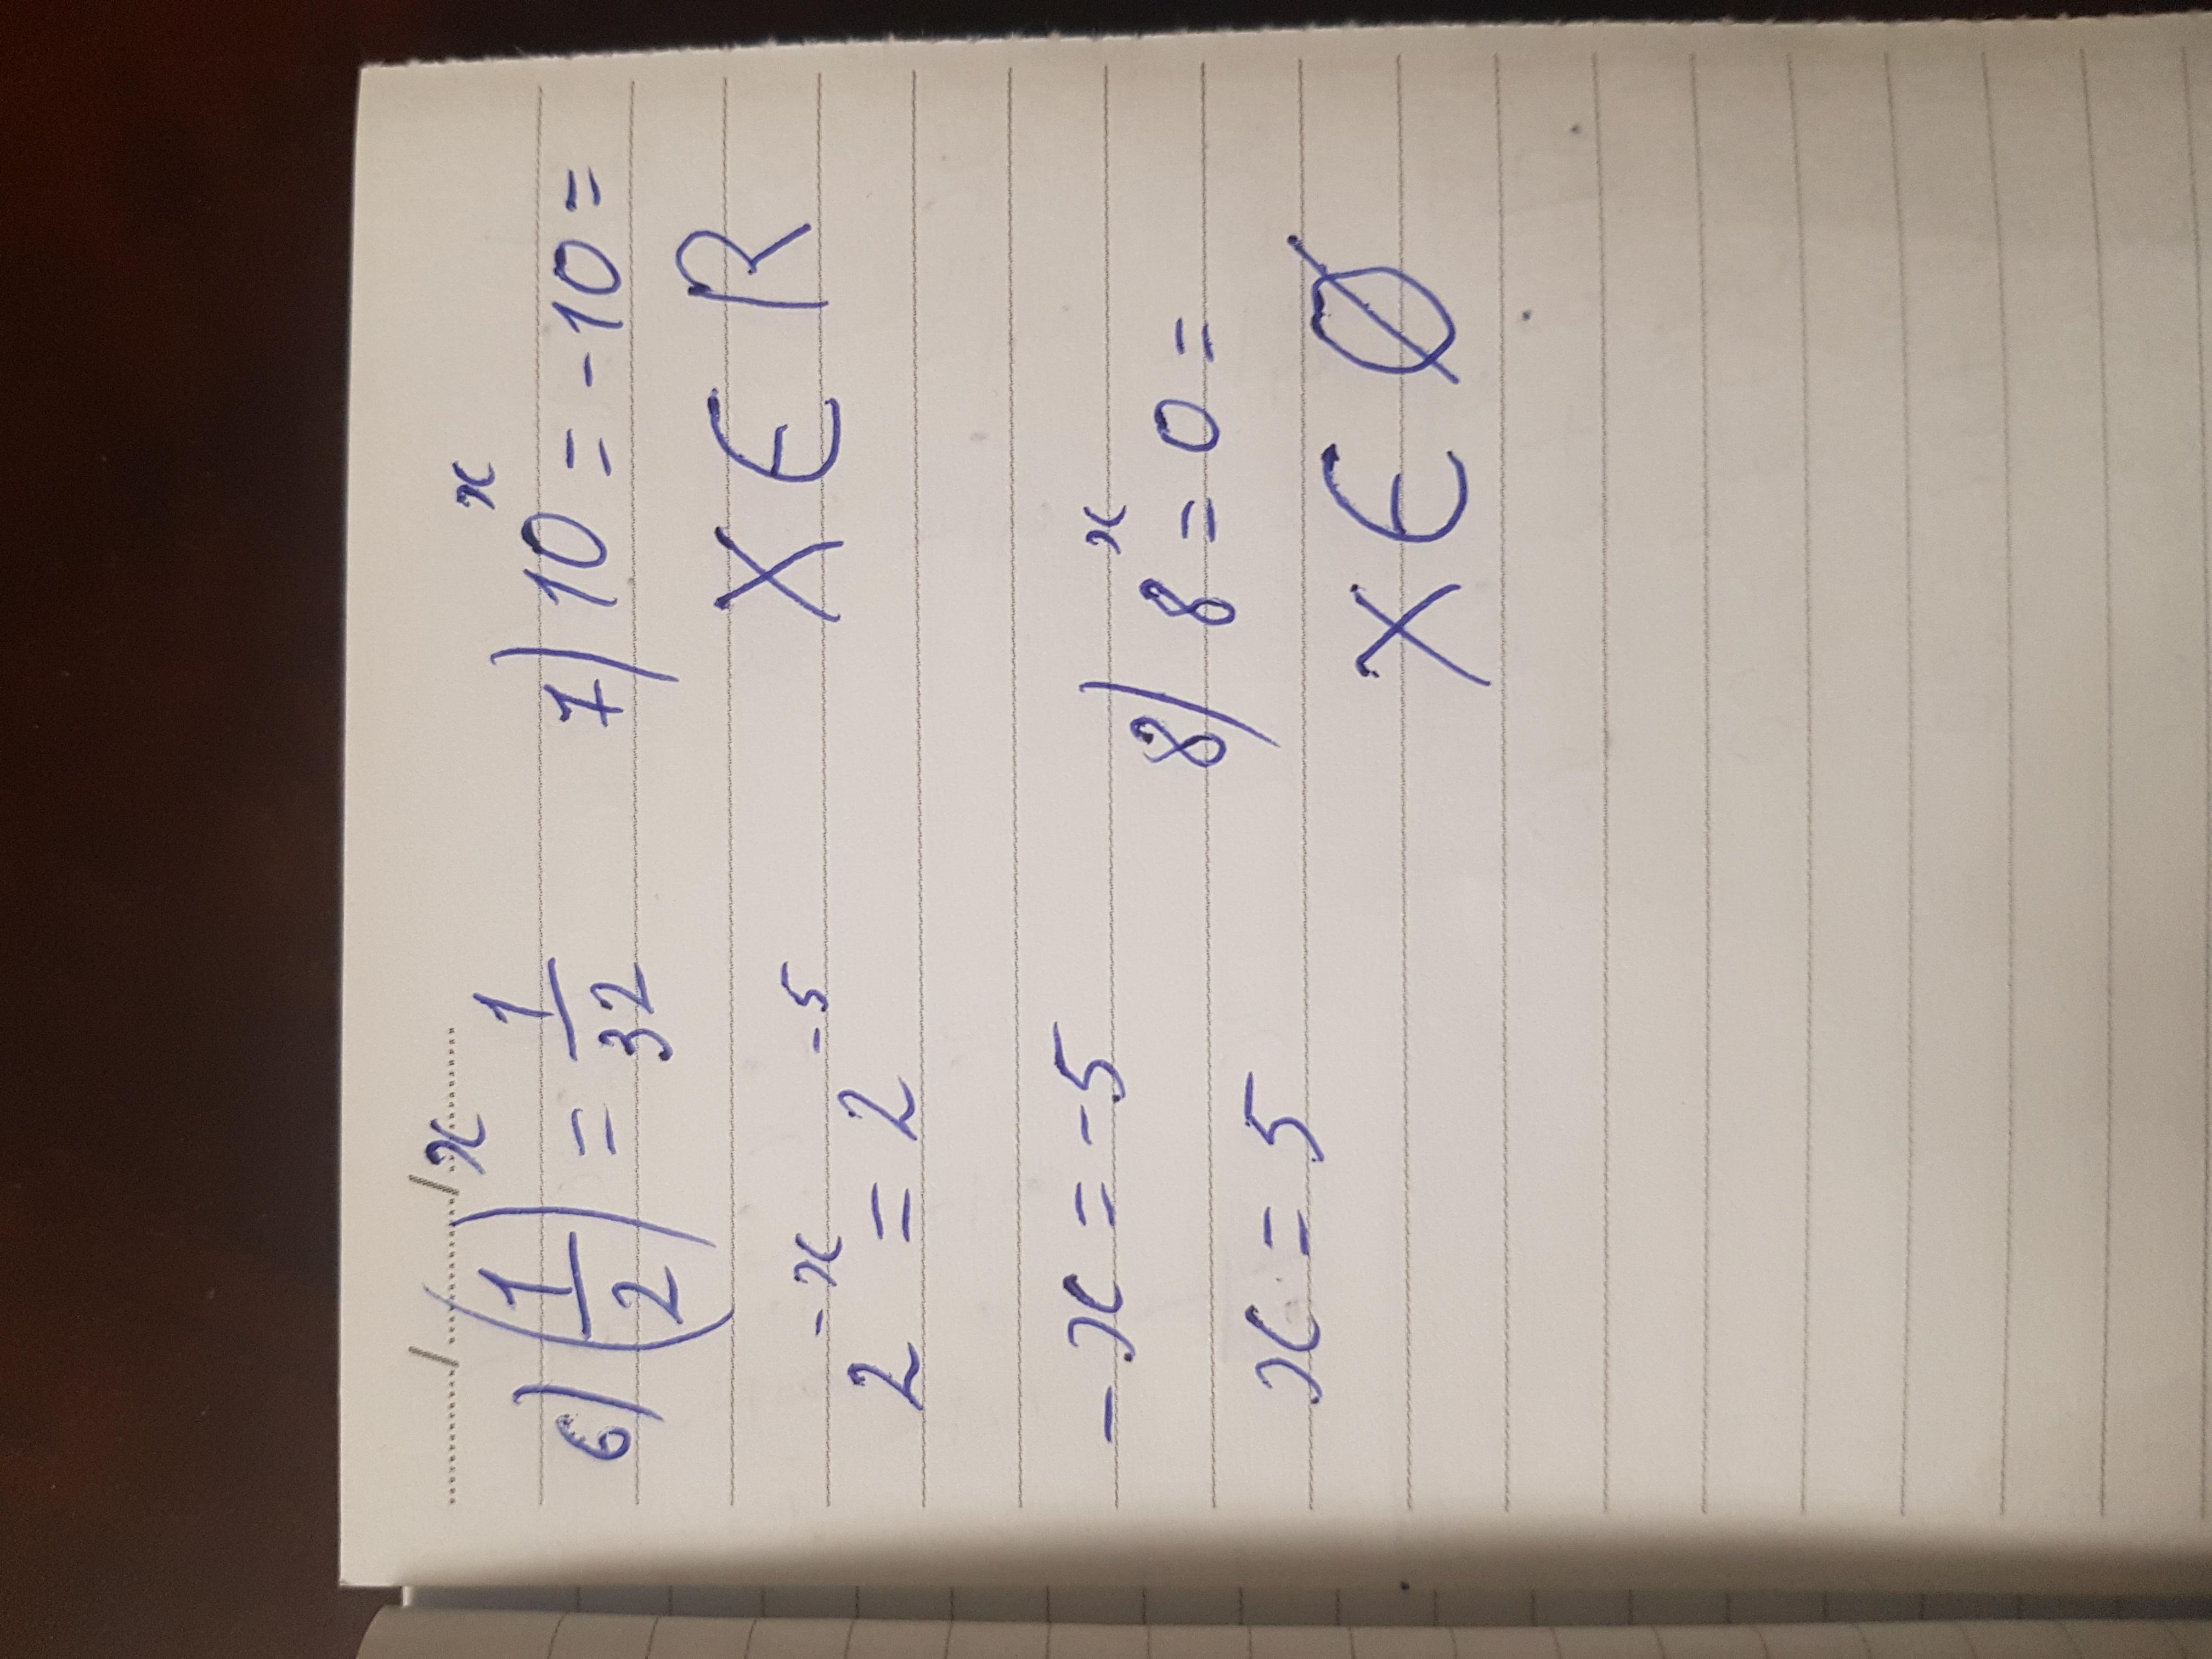 ....../....../......
6) (1/2)^x = 1/32
2^-x = 2^-5
-x = -5
x = 5
7) 10^x = -10 =
X ∈ R
8) 8^x = 0 =
X ∈ Ø